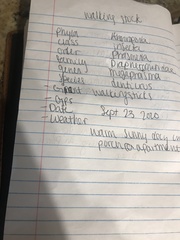 walking stick
phyla Arthropoda
class insecta
order phasmida
family Diapheromeridae
genus megaphasma
species denticrus
- Giant walkingsticks
- GPS
- Date Sept 23, 2020
- Weather
warm sunny day in
porch @ apartment